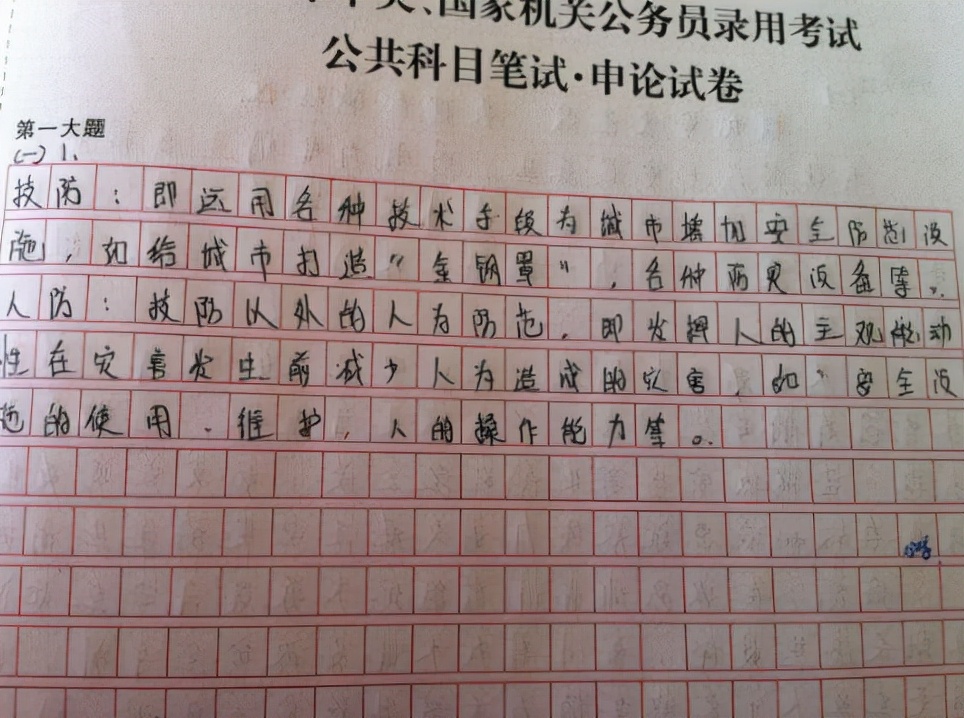 中央、国家机关公务员录用考试
公共科目笔试·申论试卷
第一大题
(一) 1、
技防：即运用各种技术手段为城市增加安全防范设
施，如给城市打造“金钢罩”，各种防灾设备等。
人防：技防以外的人为防范，即发挥人的主观能动
性在灾害发生前减少人为造成的灾害，如“安全设
施的使用、维护，人的操作能力等。